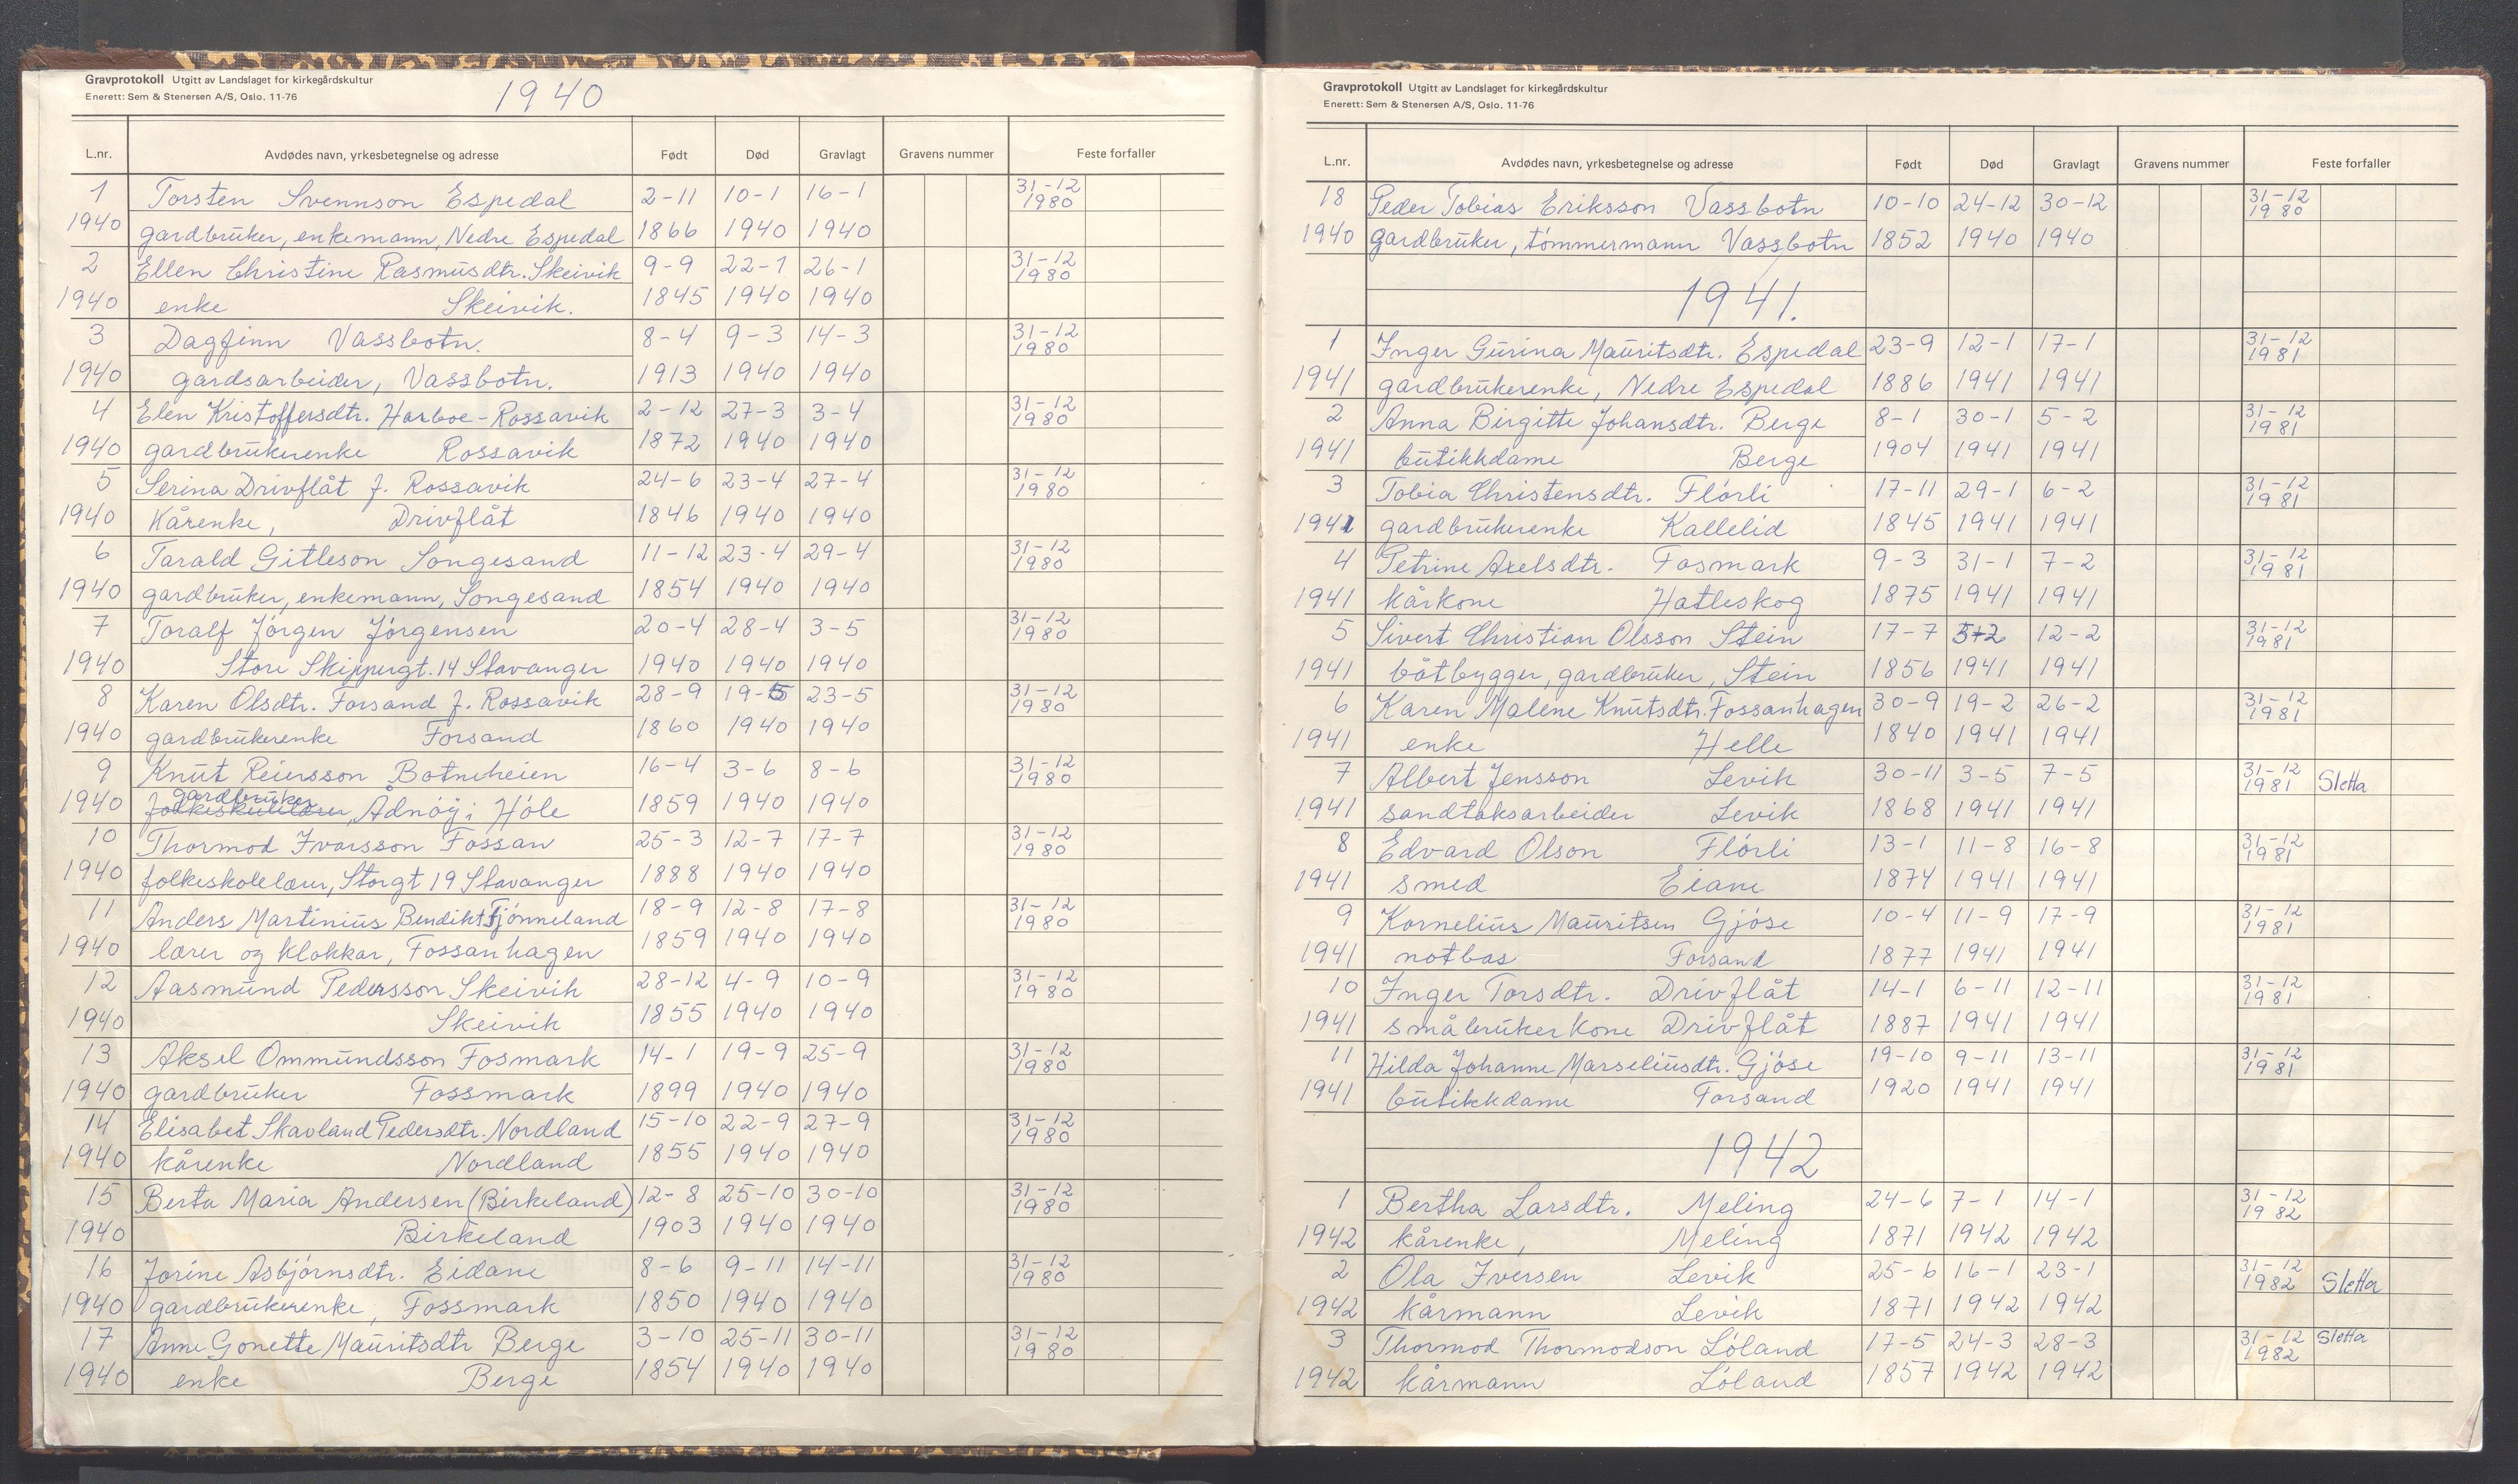 Gravprotokoll Utgitt av Landslaget for kirkegårdskultur
Enerett: Sem & Stenersen A/S, Oslo. 11-76
1940
L.nr. Avdødes navn, yrkesbetegnelse og adresse Født Død Gravlagt Gravens nummer Feste forfaller
1 Torsten Svennson Espedal 2-11 10-1 16-1 31-12 1980
1940 gardbruker, enkemann, Nedre Espedal 1866 1940 1940
2 Ellen Christine Rasmusdtr. Skeivik 9-9 22-1 26-1 31-12 1980
1940 enke Skeivik. 1845 1940 1940
3 Dagfinn Vassbotn. 8-4 9-3 14-3 31-12 1980
1940 gardsarbeider, Vassbotn. 1913 1940 1940
4 Elen Kristoffersdtr. Harboe-Rossavik 2-12 27-3 3-4 31-12 1980
1940 gardbrukerenke Rossavik 1872 1940 1940
5 Serina Drivflåt f. Rossavik 24-6 23-4 27-4 31-12 1980
1940 Kårenke, Drivflåt 1846 1940 1940
6 Tarald Gitleson Songesand 11-12 23-4 29-4 31-12 1980
1940 gardbruker, enkemann, Songesand 1854 1940 1940
7 Toralf Jörgen Jörgensen 20-4 28-4 3-5 31-12 1980
1940 Store Skippergt. 14 Stavanger 1940 1940 1940
8 Karen Olsdtr. Forsand f. Rossavik 28-9 19-5 23-5 31-12 1980
1940 gardbrukerenke Forsand 1860 1940 1940
9 Knut Reiersson Botneheien 16-4 3-6 8-6 31-12 1980
1940 gardbruker, Ådnöy i Höle 1859 1940 1940
10 Thormod Ivarsson Fossan 25-3 12-7 17-7 31-12 1980
1940 folkeskolelærer, Storgt 19 Stavanger 1888 1940 1940
11 Anders Martinius Bendikts. Tjönneland 18-9 12-8 17-8 31-12 1980
1940 lærer og klokkar, Fossanhagen 1859 1940 1940
12 Aasmund Pedersson Skeivik 28-12 4-9 10-9 31-12 1980
1940 Skeivik 1855 1940 1940
13 Aksel Ommundsson Fosmark 14-1 19-9 25-9 31-12 1980
1940 gardbruker Fossmark 1899 1940 1940
14 Elisabet Skavland Pedersdtr. Nordland 15-10 22-9 27-9 31-12 1980
1940 kårenke Nordland 1855 1940 1940
15 Berta Maria Andersen (Birkeland) 12-8 25-10 30-10 31-12 1980
1940 Birkeland 1903 1940 1940
16 Jorine Asbjörnsdtr. Eidane 8-6 9-11 14-11 31-12 1980
1940 gardbrukerenke, Fossmark 1850 1940 1940
17 Anne Gonette Mauritsdtr Berge 3-10 25-11 30-11 31-12 1980
1940 enke Berge 1854 1940 1940
Gravprotokoll Utgitt av Landslaget for kirkegårdskultur
Enerett: Sem & Stenersen A/S, Oslo. 11-76
L.nr. Avdødes navn, yrkesbetegnelse og adresse Født Død Gravlagt Gravens nummer Feste forfaller
18 Peder Tobias Eriksson Vassbotn 10-10 24-12 30-12 31-12 1980
1940 gardbruker, tömmermann Vassbotn 1852 1940 1940
1941.
1 Inger Gurina Mauritsdtr. Espedal 23-9 12-1 17-1 31-12 1981
1941 gardbrukerenke, Nedre Espedal 1886 1941 1941
2 Anna Birgitte Johansdtr. Berge 8-1 30-1 5-2 31-12 1981
1941 butikkdame Berge 1904 1941 1941
3 Tobia Christensdtr. Flörli 17-11 29-1 6-2 31-12 1981
1941 gardbrukerenke Kallelid 1845 1941 1941
4 Petrine Axelsdtr. Fosmark 9-3 31-1 7-2 31-12 1981
1941 kårkone Hatleskog 1875 1941 1941
5 Sivert Christian Olsson Stein 17-7 5-2 12-2 31-12 1981
1941 båtbygger, gardbruker, Stein 1856 1941 1941
6 Karen Malene Knutsdtr. Fossanhagen 30-9 19-2 26-2 31-12 1981
1941 enke Helle 1840 1941 1941
7 Albert Jensson Levik 30-11 3-5 7-5 31-12 1981 Sletta
1941 sandtaksarbeider Levik 1868 1941 1941
8 Edvard Olson Flörli 13-1 11-8 16-8 31-12 1981
1941 smed Eiane 1874 1941 1941
9 Kornelius Mauritsen Gjöse 10-4 11-9 17-9 31-12 1981
1941 notbas Forsand 1877 1941 1941
10 Inger Torsdtr. Drivflåt 14-1 6-11 12-11 31-12 1981
1941 småbrukerkone Drivflåt 1887 1941 1941
11 Hilda Johanne Marseliusdtr. Gjöse 19-10 9-11 13-11 31-12 1981
1941 butikkdame Forsand 1920 1941 1941
1942
1 Bertha Larsdtr. Meling 24-6 7-1 14-1 31-12 1982
1942 kårenke, Meling 1871 1942 1942
2 Ola Iversen Levik 25-6 16-1 23-1 31-12 1982 Sletta
1942 kårmann Levik 1871 1942 1942
3 Thormod Thormodson Löland 17-5 24-3 28-3 31-12 1982 Sletta
1942 kårmann Löland 1857 1942 1942